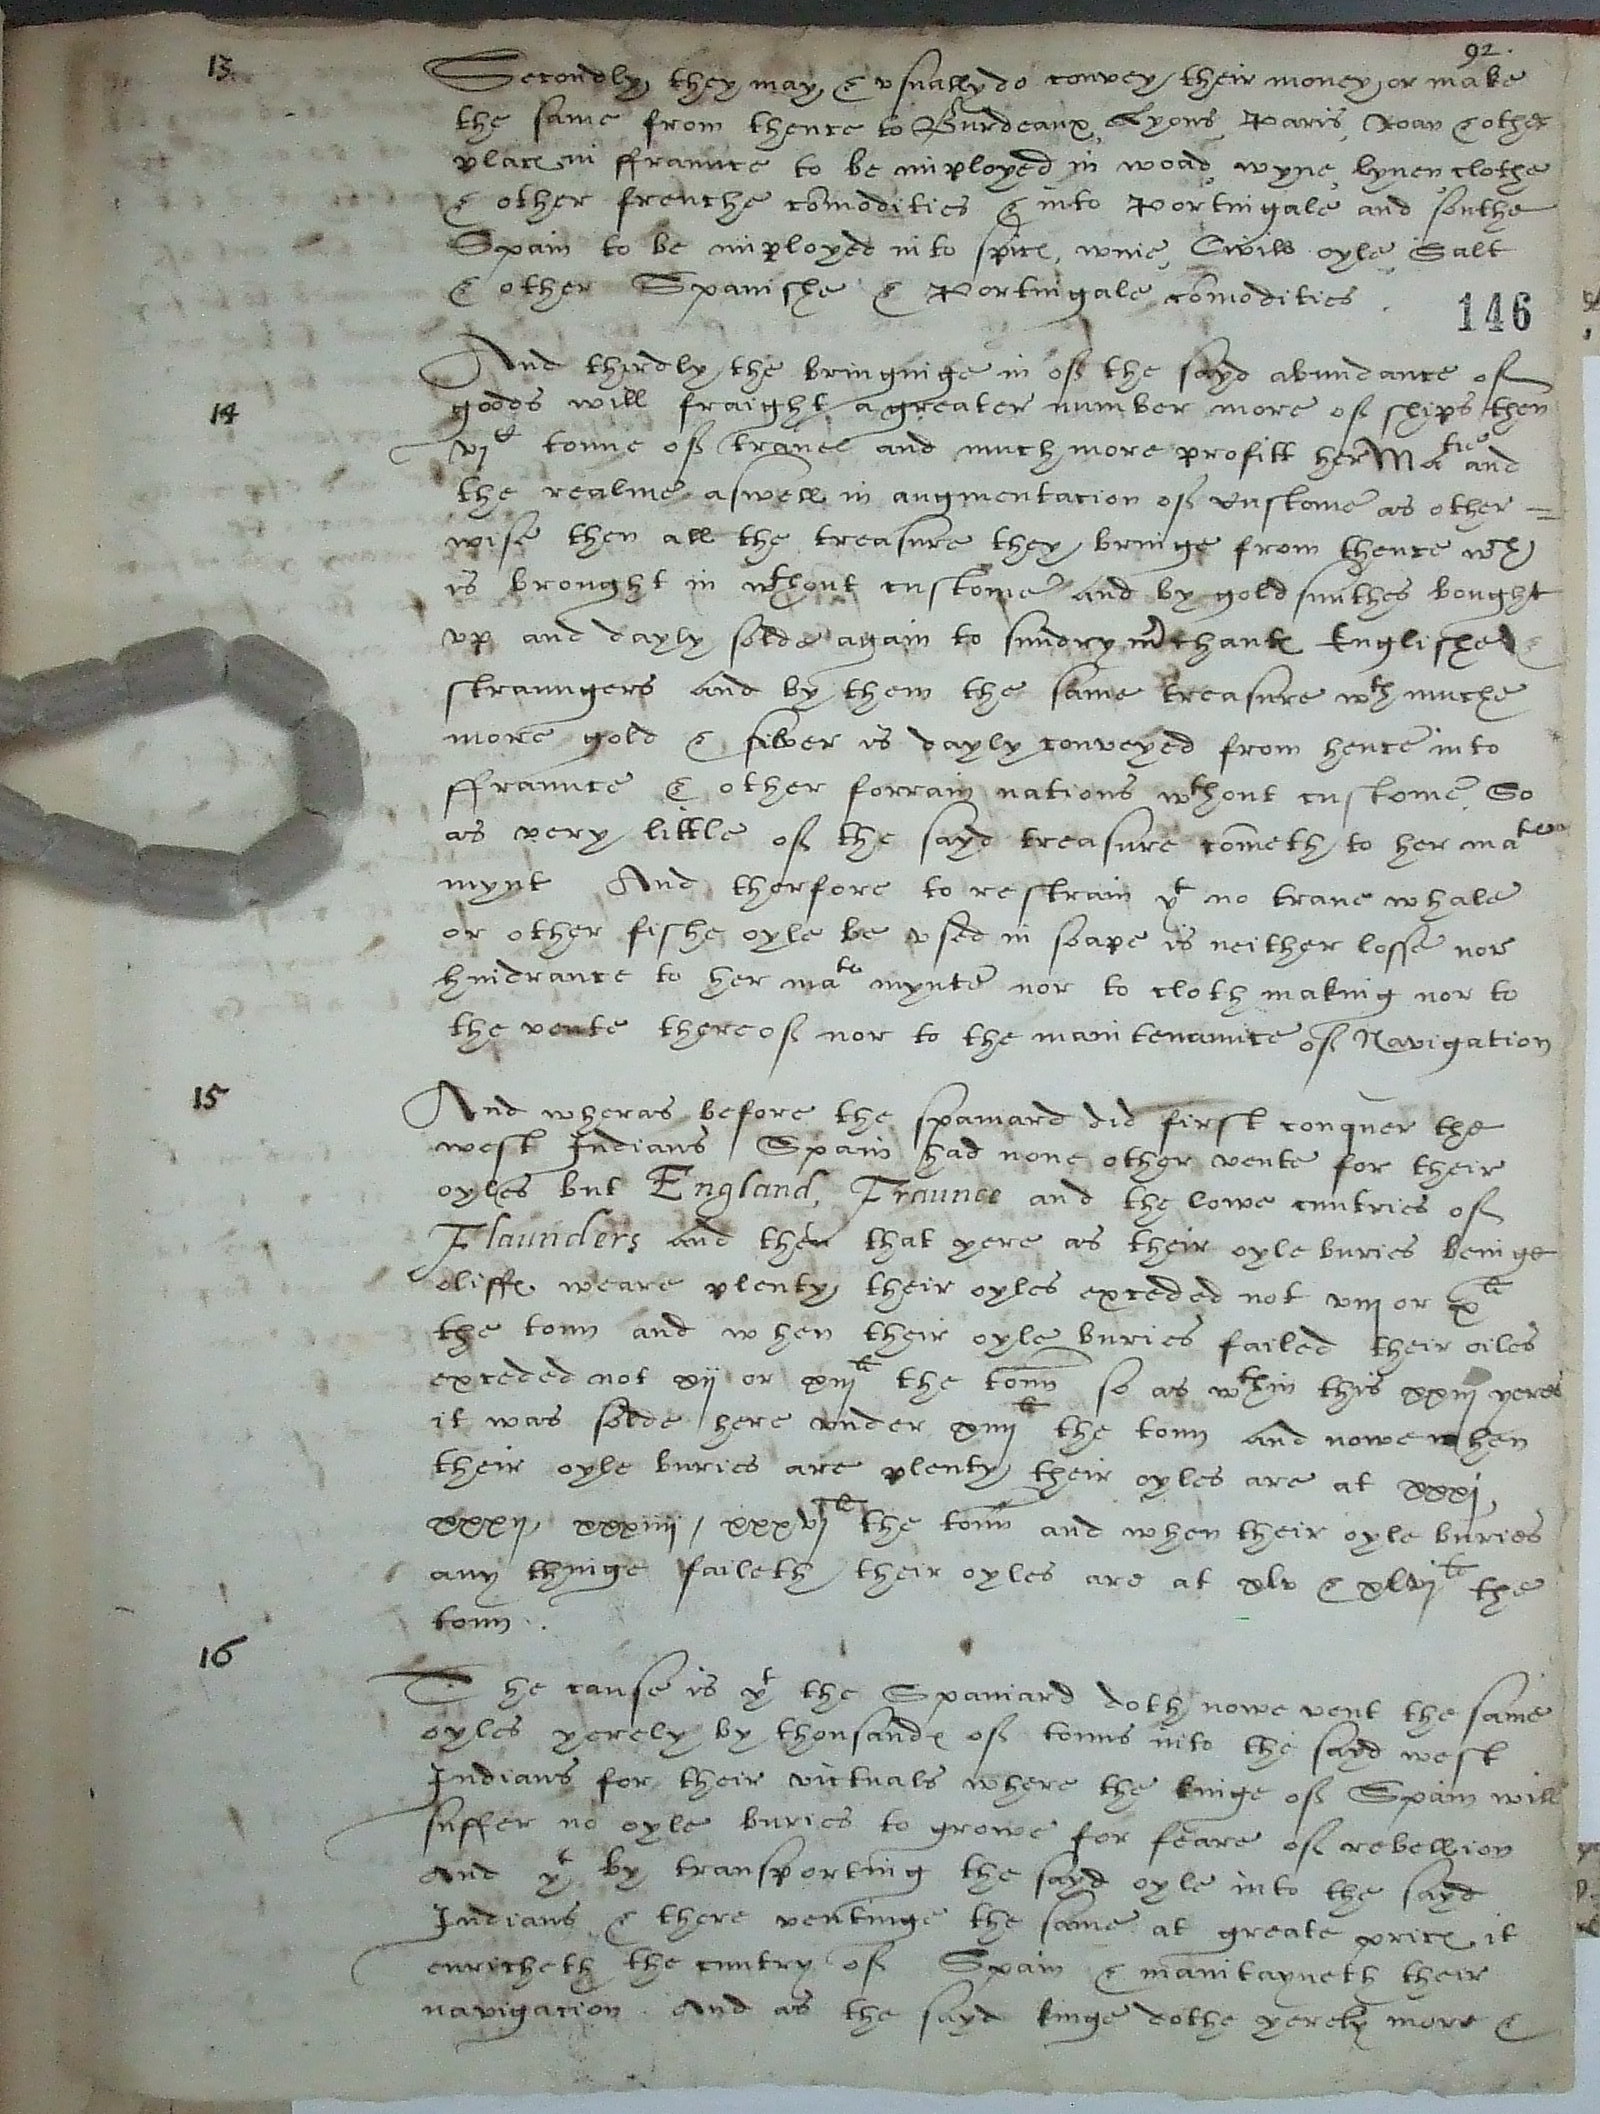 92.
13 Secondly they may & vsually do convey their money or make
the same from thence to Burdeaux, Lyons, Paris, Roan & other
places in ffraunce to be imployed in woad, wyne, lynen clothe
& other frenche comodities & into Portingale and southe
Spain to be imployed into spices, wine, Civill oyle, Salt
& other Spanishe & Portingale comodities.
146
And thirdly the bringinge in of the sayd abundance of
14 goods will fraight a greater number more of ships then
vjC tonne of trane and much more profitt her Matie and
the realme aswell in augmentacion of custome as other=
wise then all the treasure they bringe from thence wch
is brought in wthout custome and by goldsmithes bought
vp and dayly solde again to sundry mrchants Englishe &
straungers and by them the same treasure wth muche
more gold & silver is dayly conveyed from hence into
ffraunce & other forrain nations wthout custome, So
as very little of the sayd treasure cometh to her mates
mynt And therfore to restrain yt no trane whale
or other fishe oyle be vsed in soape is neither losse nor
hindrance to her mats mynte nor to cloth making nor to
the vente thereof nor to the maintenaunce of Navigation
15 And wheras before the spaniard did first conquer the
west Indians Spain had none other vente for their
oyles but England, Fraunce and the lowe cuntries of
Flaunders and then that yere as their oyle buries beinge
oliffs weare plenty their oyles exceded not viij or xli
the tonn and when their oyle buries failed their oiles
exceded not xij or xiijli the tonn so as wthin this xxiij yeres
it was solde here vnder xiiijli the tonn and nowe when
their oyle buries are plenty their oyles are at xxxj,
xxxij, xxxiiij, xxxvjli the tonn and when their oyle buries
any thinge faileth their oyles are at xlv & xlvjli the
tonn.
16 The cause is yt the Spaniard doth nowe vent the same
oyles yerely by thousands of tonns into the sayd west
Indians for their victuals where the kinge of Spain will
suffer no oyle buries to growe for feare of rebellion
And yt by transporting the sayd oyle into the sayd
Indians & there ventinge the same at greate prices it
enricheth the cuntry of Spain & maintayneth their
navigacion. And as the sayd kinge dothe yerely more &